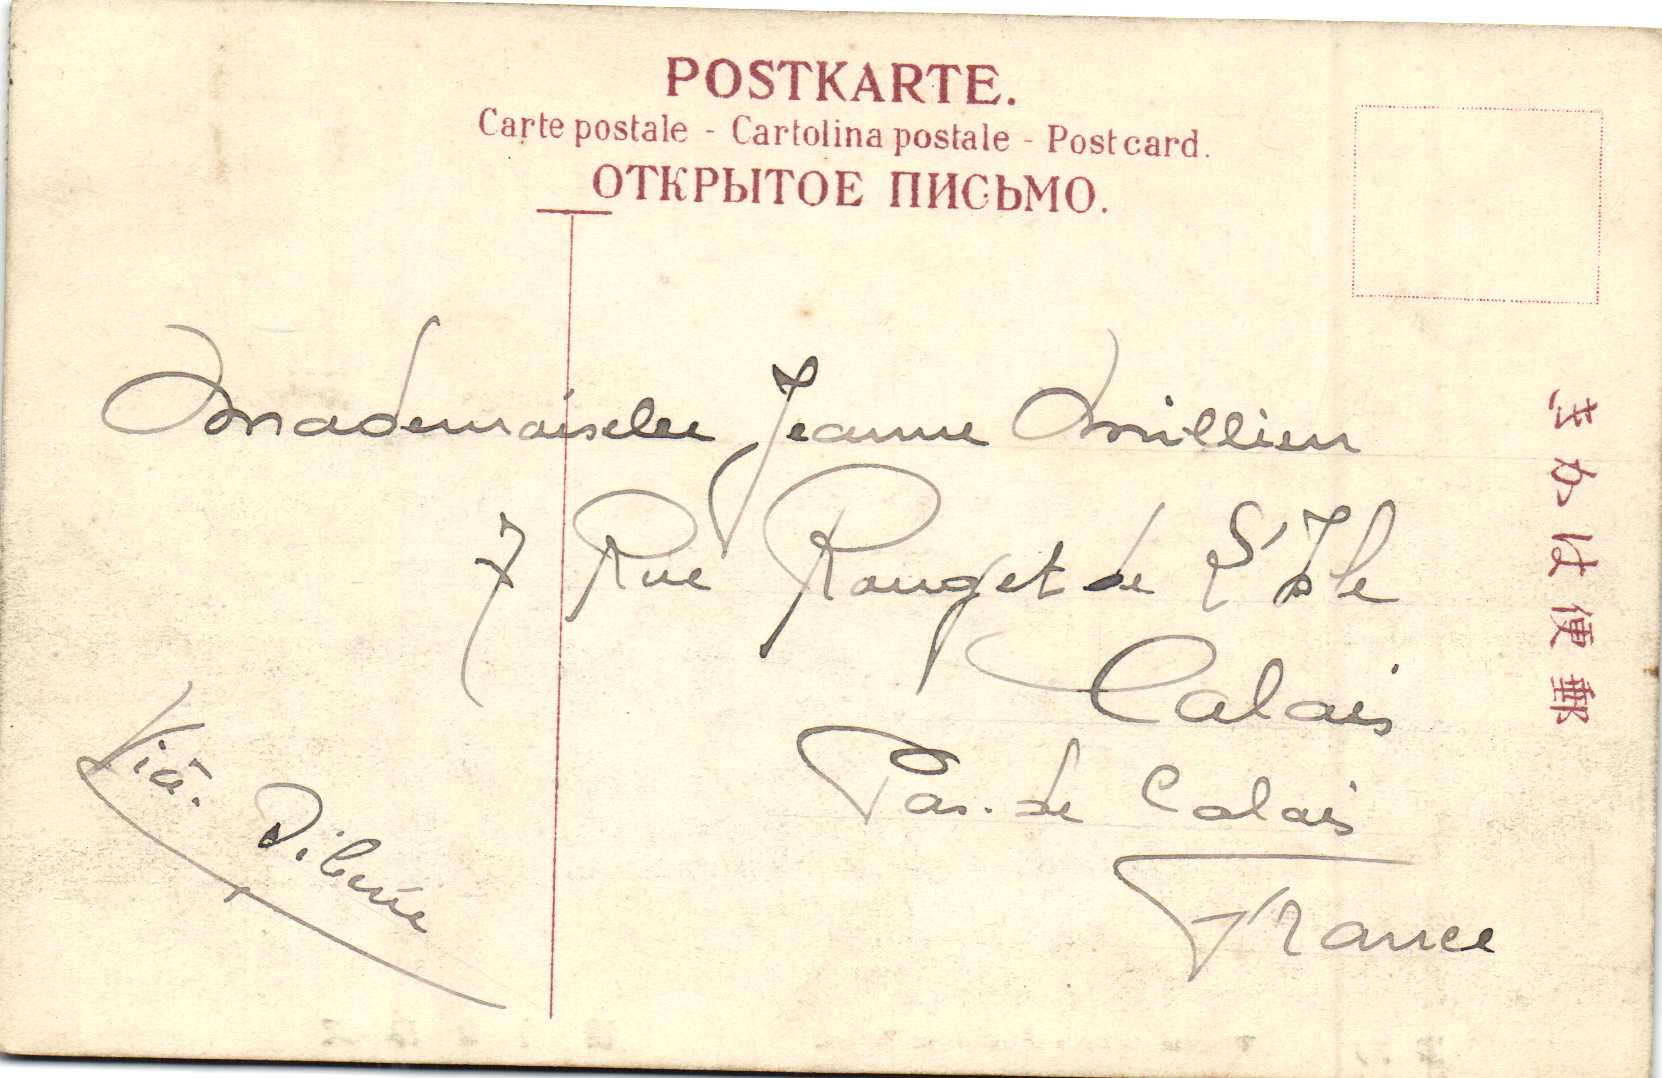 POSTKARTE.
Carte postale - Cartolina postale - Post card.
ОТКРЫТОЕ ПИСЬМО.
Mademoiselle Jeanne Millien
7 Rue Rouget de L'Isle
Calais
Pas. de Calais
France
Viâ. Sibérie
郵便はかき